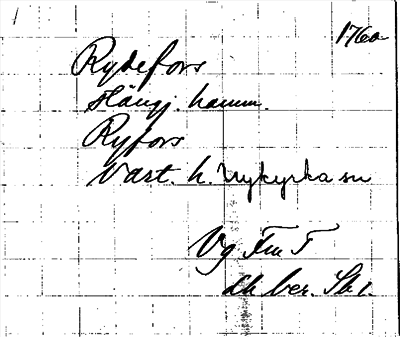 1760
Rydefors
Stångj. hamm.
Ryfors
Vart. h. Nykyrka sn
Vg Fm F
dh ber. Sk 1.